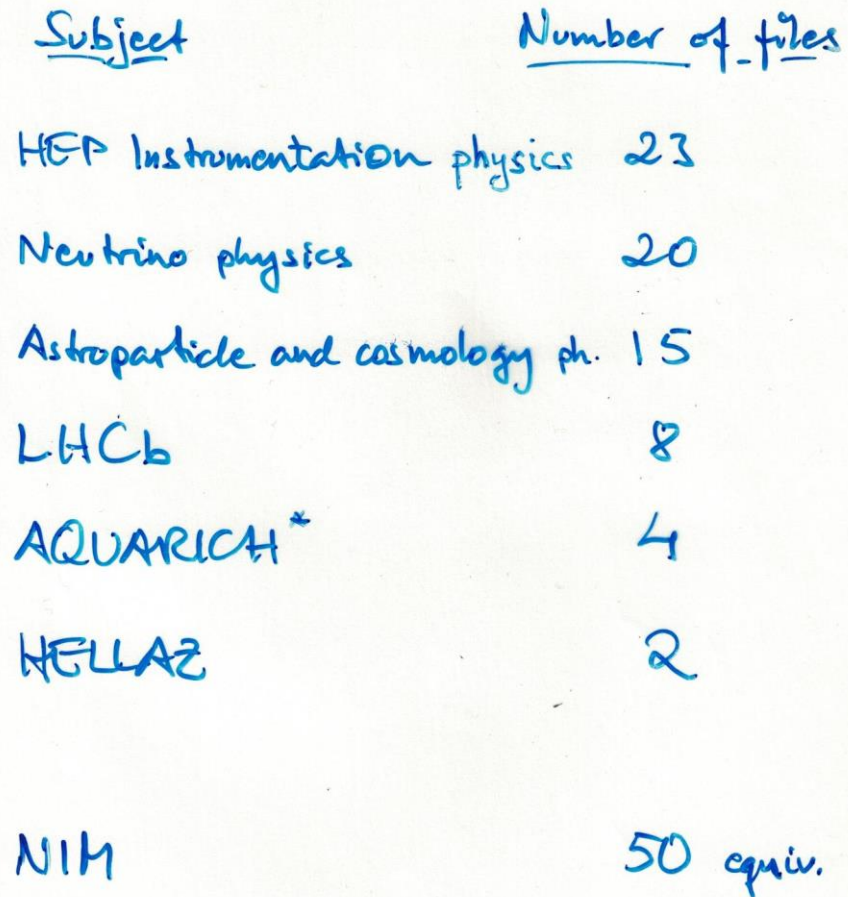 Subject Number of files
HEP Instrumentation physics 23
Neutrino physics 20
Astroparticle and cosmology ph. 15
LHCb 8
AQUARICH* 4
HELLAZ 2
NIM 50 equiv.